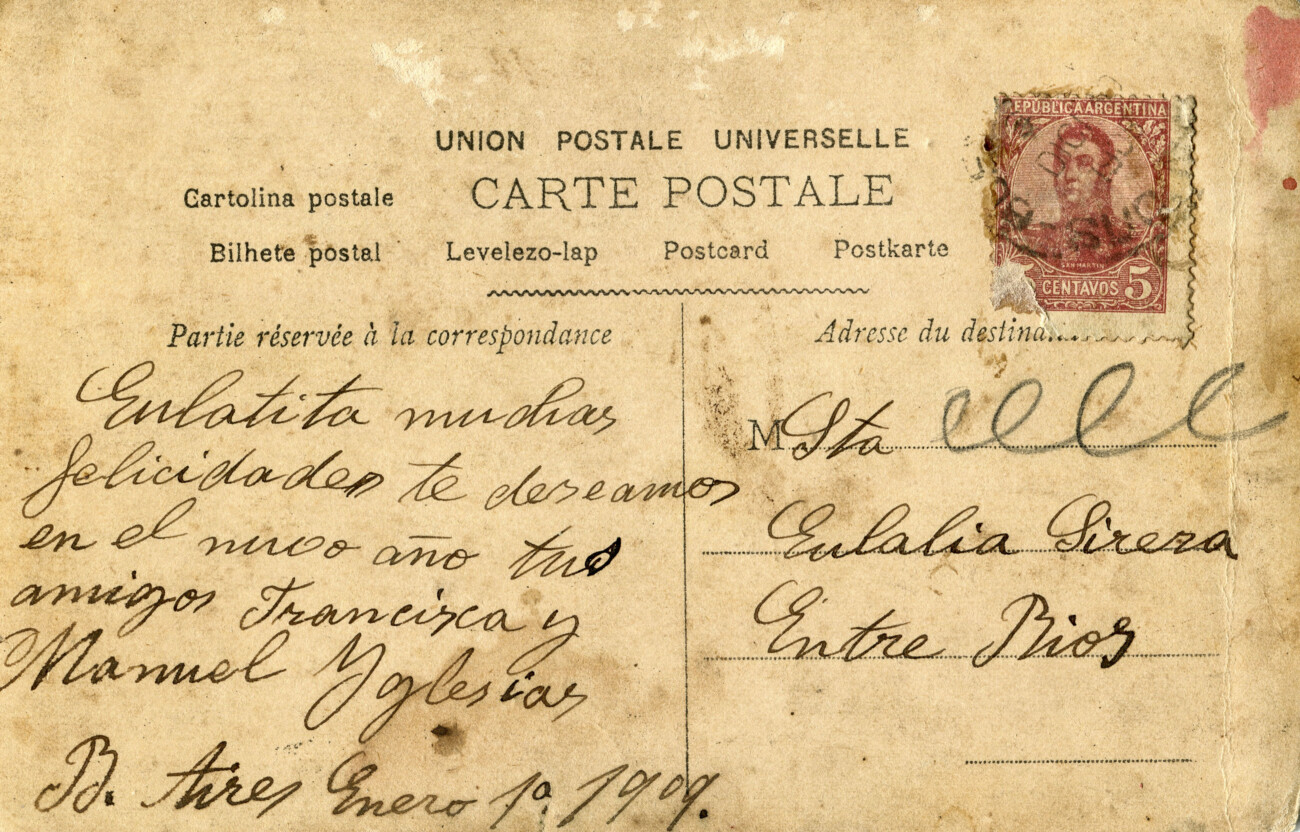 UNION POSTALE UNIVERSELLE
Cartolina postale CARTE POSTALE
Bilhete postal Levelezo-lap Postcard Postkarte
REPÚBLICA ARGENTINA
SAN MARTIN
CENTAVOS 5
Partie réservée à la correspondance
Eulatita muchas
felicidades te deseamos
en el nuvo año tus
amigos Francisca y
Manuel Yglesias
B. Aires Enero 1º 1909.
Adresse du
M Sta
Eulalia Sireza
Entre Rios